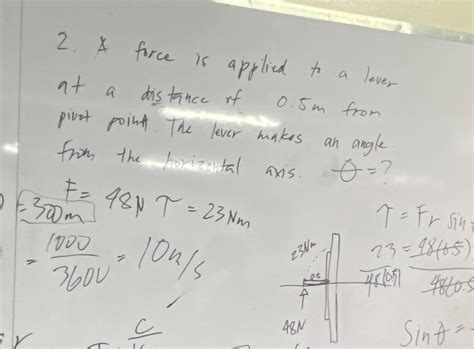 2. A force is applied to a lever
at a distance of 0.5m from
pivot point. The lever makes an angle
from the horizontal axis. θ = ?
F = 48N τ = 23Nm
= 300m
= 1000 / 3600 = 10m/s
τ = Fr sin
23 = 48(0.5)
48(0.5) 48(0.5
Sinθ =
23Nm
0.5
48N
C